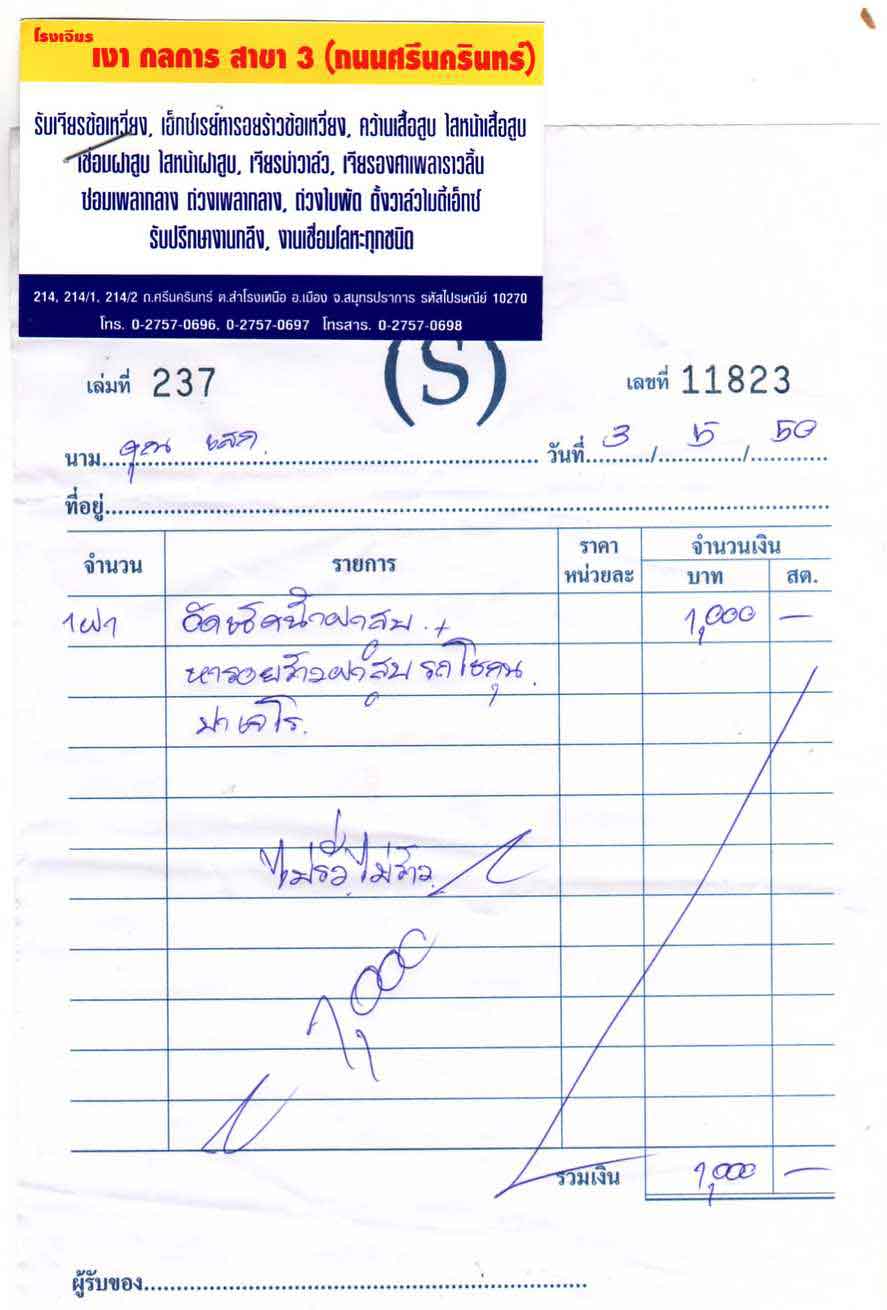 โรงเจียร
เงา กลการ สาขา 3 (ถนนศรีนครินทร์)
รับเจียรข้อเหวี่ยง, เอ็กซ์เรย์หารอยร้าวข้อเหวี่ยง, คว้านเสื้อสูบ ไสหน้าเสื้อสูบ
เชื่อมฝาสูบ ไสหน้าฝาสูบ, เจียรบ่าวาล์ว, เจียรองศาเพลาราวลิ้น
ซ่อมเพลากลาง ถ่วงเพลากลาง, ถ่วงใบพัด ตั้งวาล์วไมตี้เอ็กซ์
รับปรึกษางานกลึง, งานเชื่อมโลหะทุกชนิด
214, 214/1, 214/2 ถ.ศรีนครินทร์ ต.สำโรงเหนือ อ.เมือง จ.สมุทรปราการ รหัสไปรษณีย์ 10270
โทร. 0-2757-0696, 0-2757-0697 โทรสาร. 0-2757-0698
(S)
เล่มที่ 237 เลขที่ 11823
นาม คุณ วันที่ 3 / 5 / 50
ที่อยู่
จำนวน รายการ ราคาหน่วยละ จำนวนเงิน
บาท สต.
1 ฝา อัดเช็คน้ำฝาสูบ + 1,000 —
หารอยร้าวฝาสูบ รถโชกุน
ปาเจโร
ไม่รั่ว ไม่ร้าว
1,000
รวมเงิน 1,000 —
ผู้รับของ